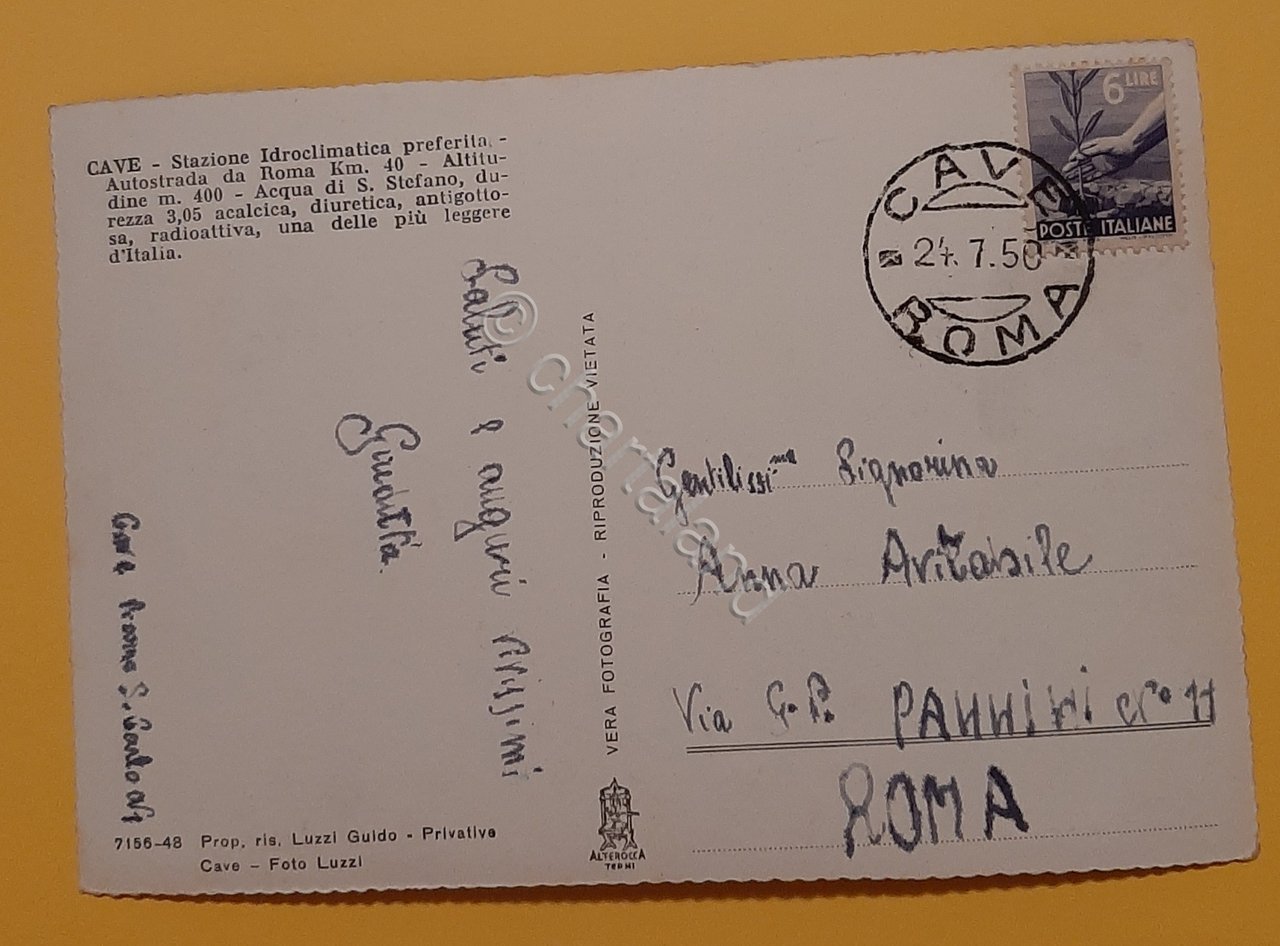 CAVE - Stazione Idroclimatica preferita. -
Autostrada da Roma Km. 40 - Altitu-
dine m. 400 - Acqua di S. Stefano, du-
rezza 3,05 acalcica, diuretica, antigotto-
sa, radioattiva, una delle più leggere
d'Italia.
6 LIRE
POSTE ITALIANE
CAVE
24.7.50
ROMA
Saluti e auguri
Cave Roma S. Carlo
VERA FOTOGRAFIA - RIPRODUZIONE VIETATA
Gentilissima Signorina
Anna Avitabile
Via G. P. PANNINI n° 11
ROMA
7156-48 Prop. ris. Luzzi Guido - Privative
Cave - Foto Luzzi
ALTEROCCA
TERNI
© chartaland